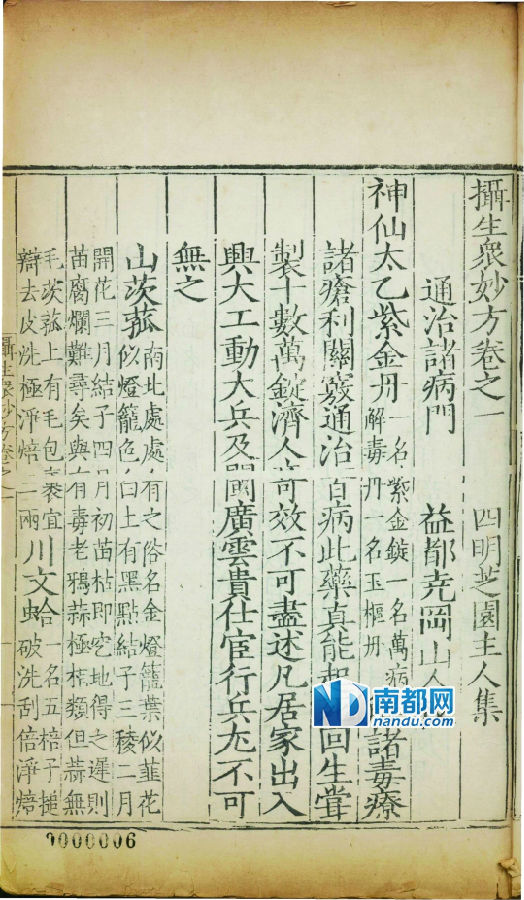 攝生衆妙方卷之一 四明芝園主人集
通治諸病門 益都尭岡山人
神仙太乙紫金丹 名紫金錠一名萬病
解毒丹一名玉樞丹 諸毒療
諸瘡利關竅通治百病此藥真能起回生嘗
製十數萬錠濟人奇效不可盡述凡居家出入
興大工動大兵及閩廣雲貴仕宦行兵尤不可
無之
山茨菰 南北處處有之俗名金燈籠葉似韮花
似燈籠色白上有黑點結子三稜二月
開花三月結子四月初苗枯即空地得之遲則
苗腐爛難尋矣與有毒老鴉蒜極相類但蒜無
毛茨菰上有毛包裹宜
辧去皮洗極淨焙二兩 川文蛤 一名五棓子搥
破洗刮倍淨焙
攝生衆妙方卷之一
南都网
nandu.com
0000006